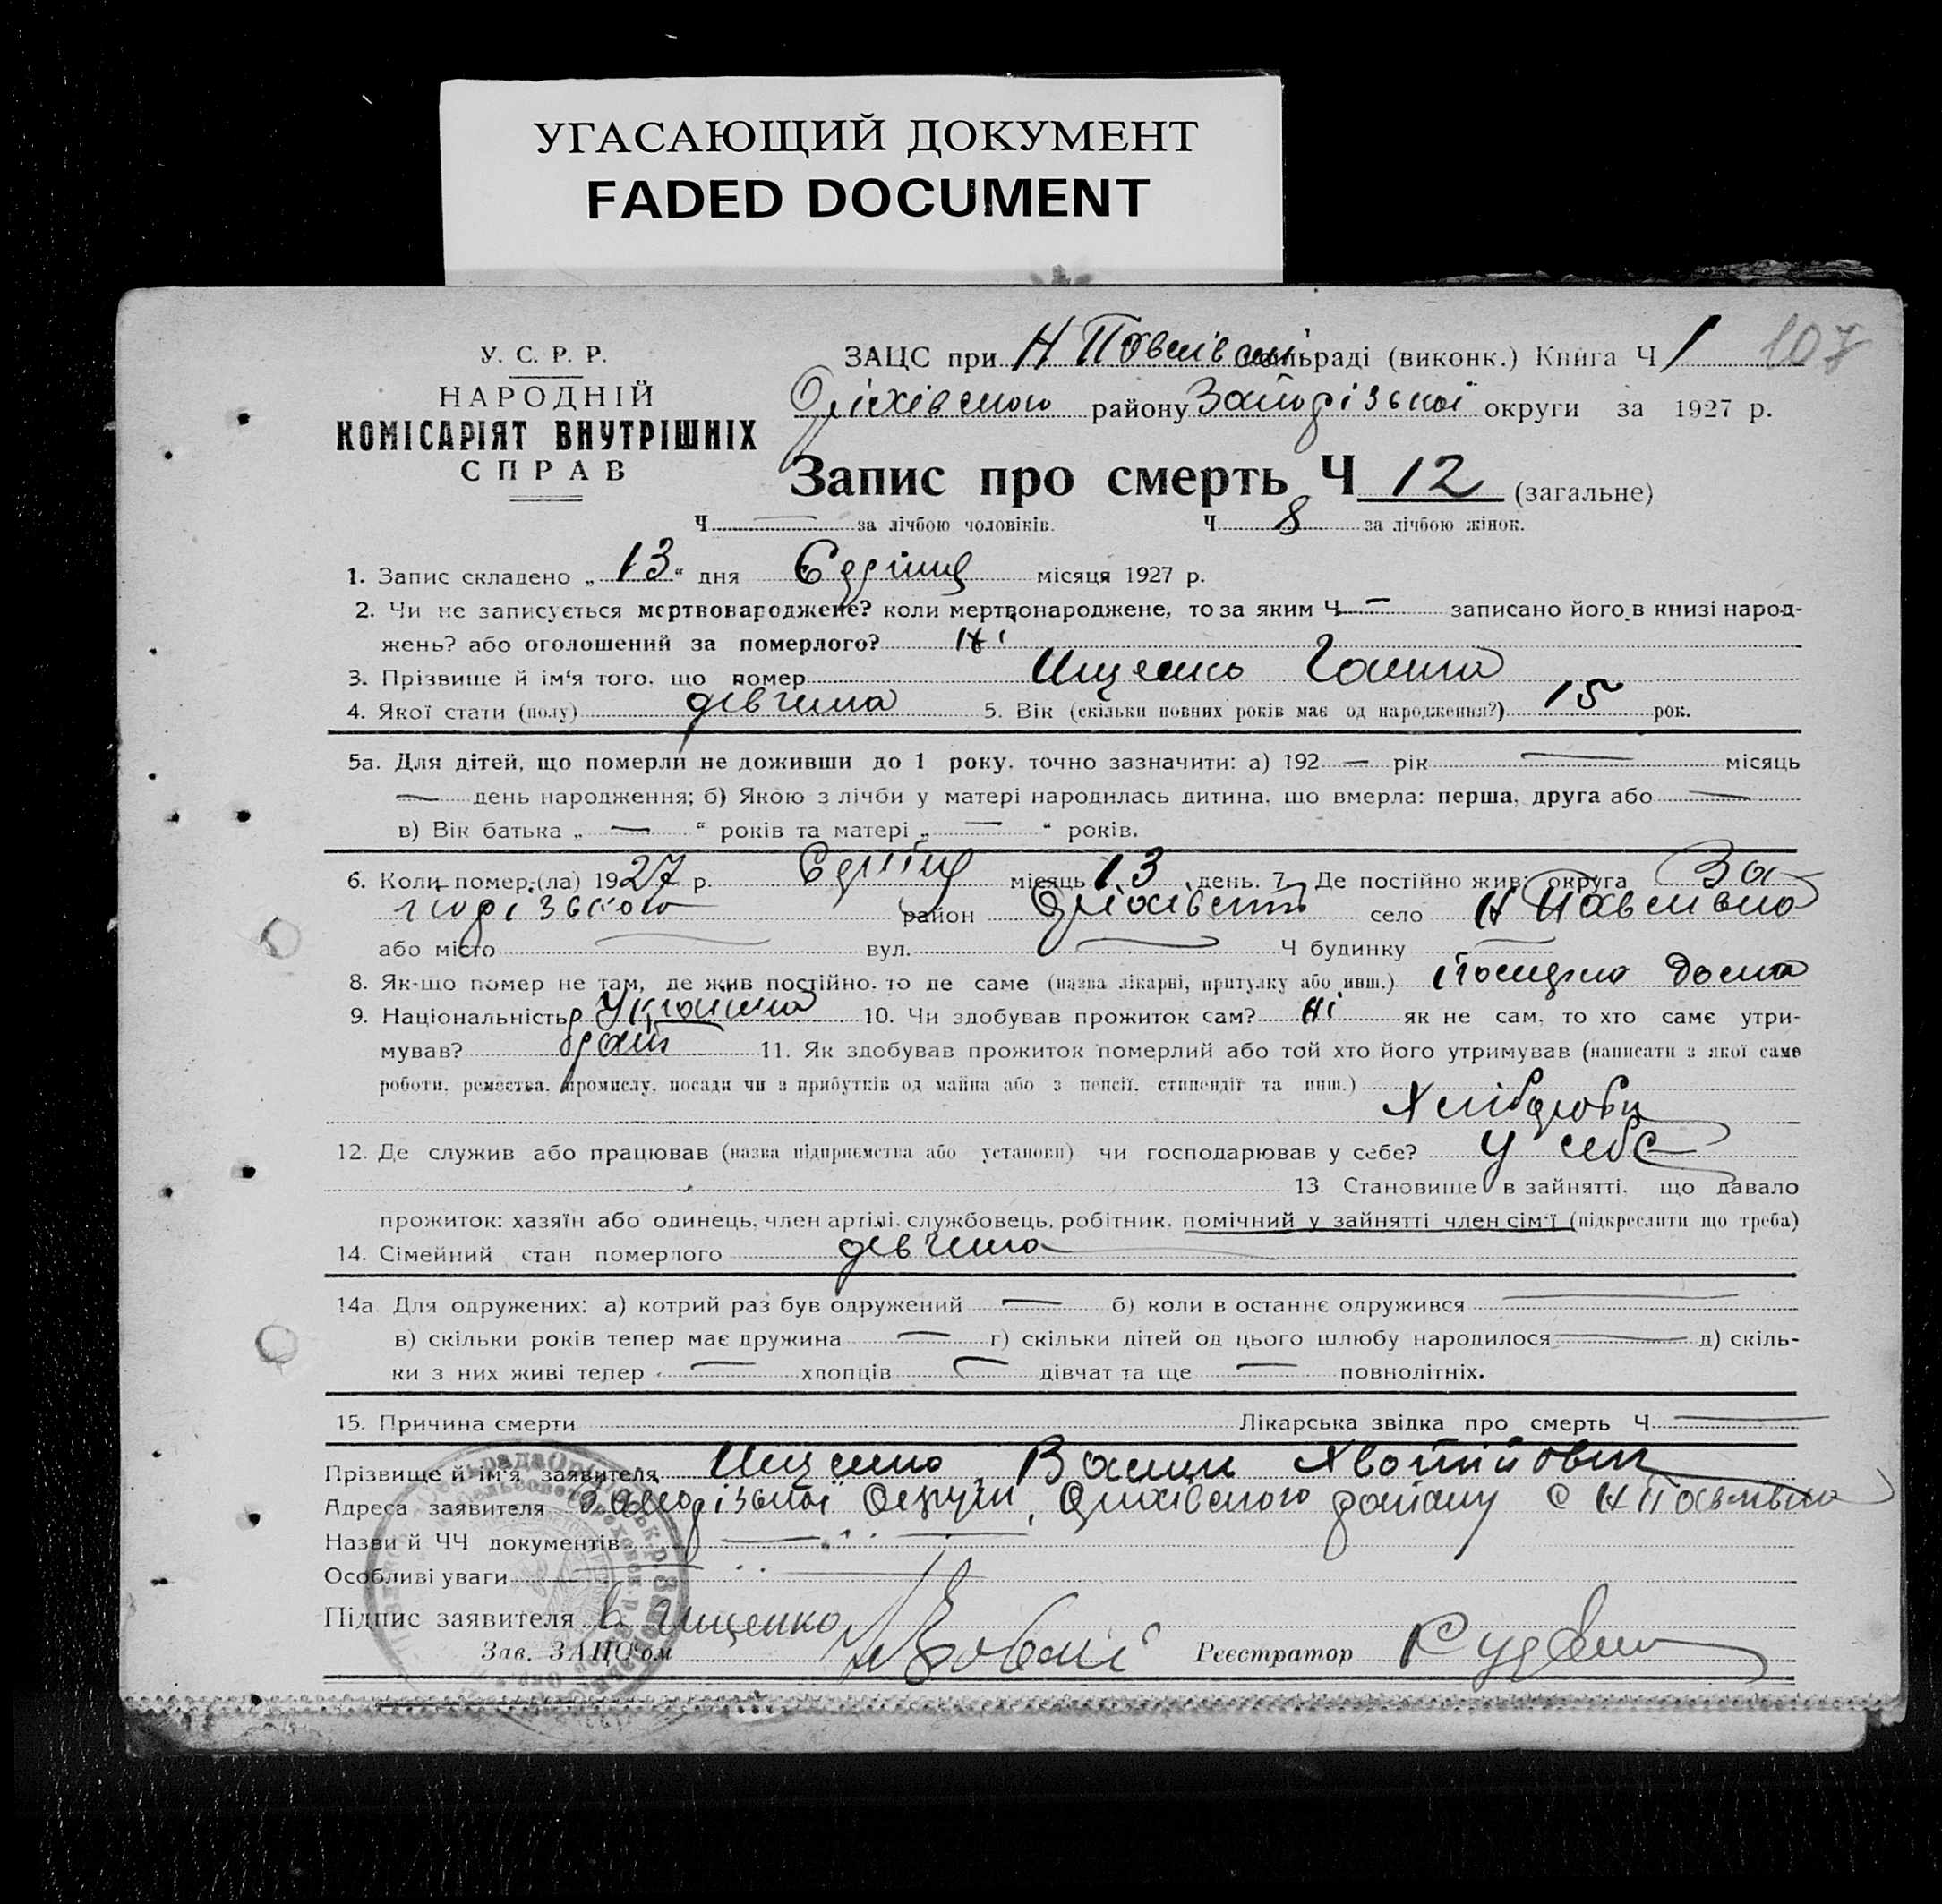 УГАСАЮЩИЙ ДОКУМЕНТ
FADED DOCUMENT
107
У. С. Р. Р.
НАРОДНІЙ
КОМІСАРІЯТ ВНУТРІШНІХ
СПРАВ
ЗАЦС при Н Павлівській сільраді (виконк.) Книга Ч 1
Оріхівського району Запорізької округи за 1927 р.
Запис про смерть Ч 12 (загальне)
Ч — за лічбою чоловіків. Ч 8 за лічбою жінок.
1. Запис складено „ 13 “ дня місяця 1927 р.
2. Чи не записується мертвонароджене? коли мертвонароджене, то за яким Ч — записано його в книзі народ-
жень? або оголошений за померлого? Ні
3. Прізвище й ім'я того, що помер Ищенко Ганна
4. Якої стати (полу) дівчина 5. Вік (скільки повних років має од народження?) 15 рок.
5а. Для дітей, що померли не доживши до 1 року, точно зазначити: а) 192 — рік — місяць
— день народження; б) Якою з лічби у матері народилась дитина, що вмерла: перша, друга або —
в) Вік батька „ — “ років та матері „ — “ років.
6. Коли помер (ла) 1927 р. місяць 13 день. 7. Де постійно жив: округа За-
порізького район Оріхівський село Н Павлівка
або місто — вул. — Ч будинку —
8. Як-що помер не там, де жив постійно, то де саме (назва лікарні, притулку або инш.) дома
9. Національність Українка 10. Чи здобував прожиток сам? Ні як не сам, то хто саме утри-
мував? 11. Як здобував прожиток померлий або той хто його утримував (написати з якої саме
роботи, ремества, промислу, посади чи з прибутків од майна або з пенсії, стипендії та инш.)
Хлібороби
12. Де служив або працював (назва підприємства або установи) чи господарював у себе? У себе
13. Становище в зайнятті, що давало
прожиток: хазяїн або одинець, член артілі, службовець, робітник, помічний у зайнятті член сім'ї (підкреслити що треба)
14. Сімейний стан померлого дівчина
14а. Для одружених: а) котрий раз був одружений — б) коли в останнє одружився —
в) скільки років тепер має дружина — г) скільки дітей од цього шлюбу народилося — д) скіль-
ки з них живі тепер — хлопців — дівчат та ще — повнолітніх.
15. Причина смерти Лікарська звідка про смерть Ч —
Прізвище й ім'я заявителя Ищенко
Адреса заявителя Запорізької Округи, Оріхівського району с Н Павлівка
Назви й ЧЧ документів —
Особливі уваги —
Підпис заявителя В. Ищенко
Зав. ЗАЦС'ом Реєстратор